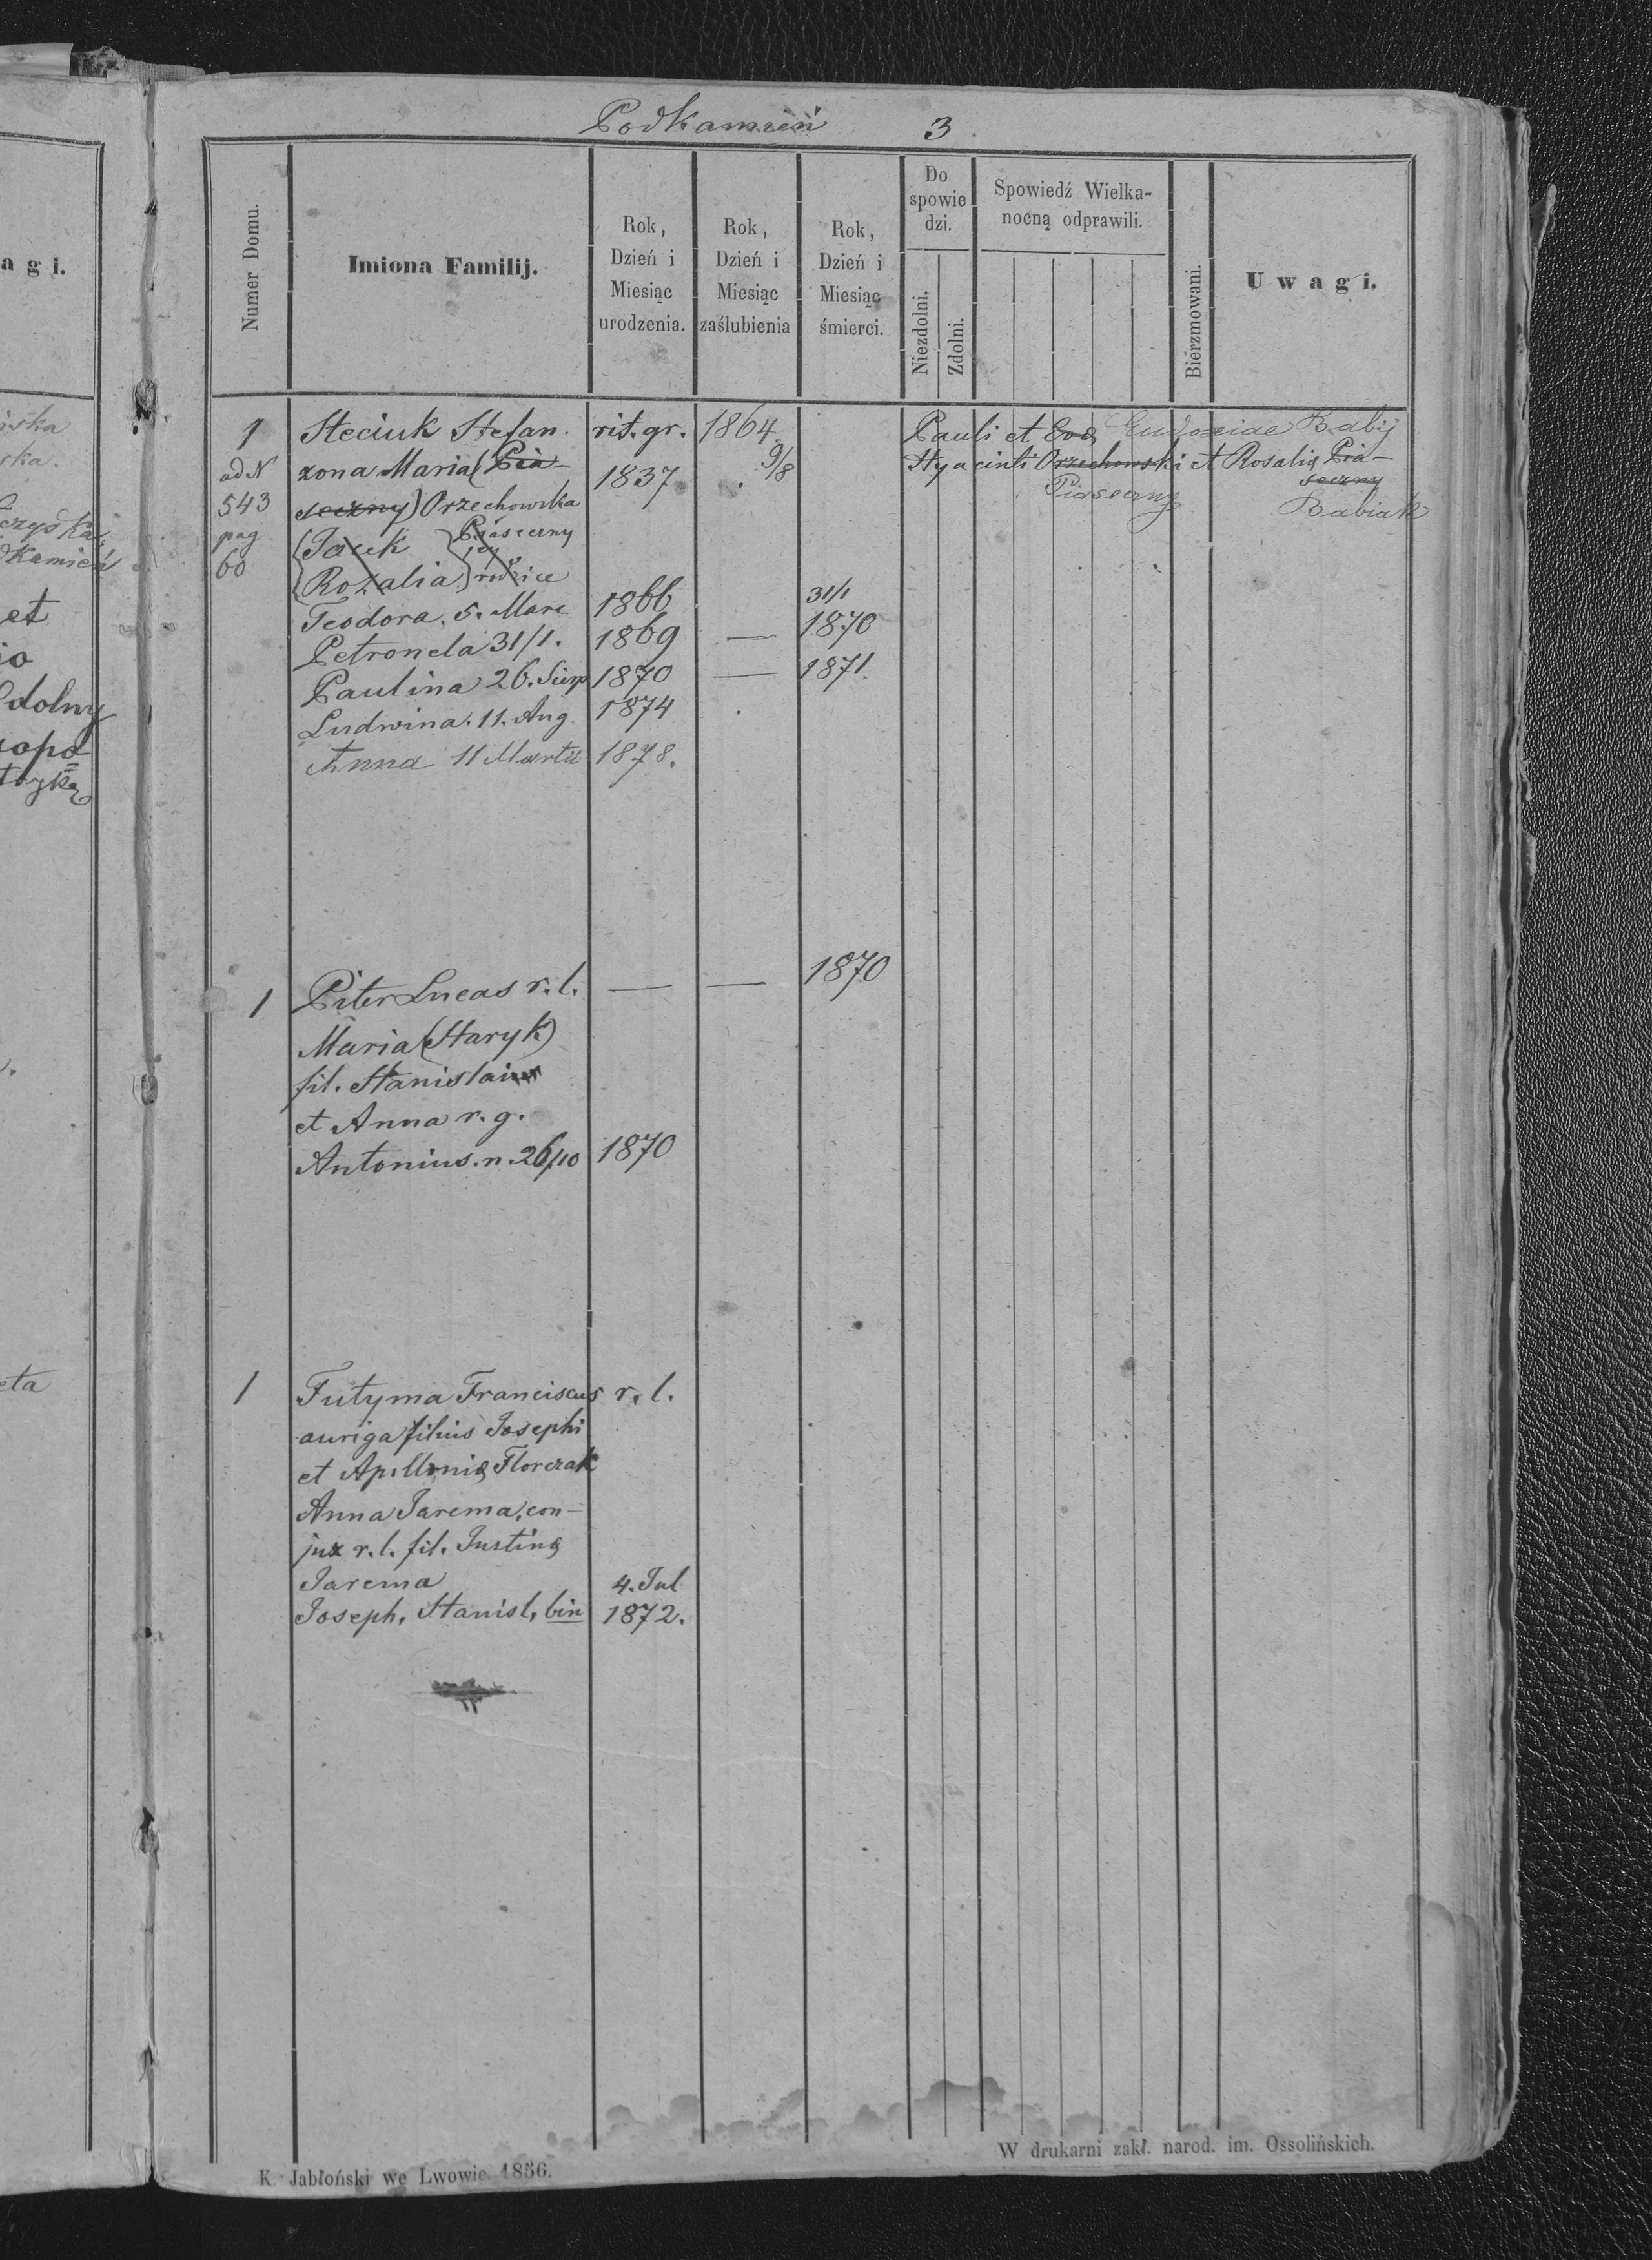 Podkamień 3
a g i.
Numer Domu.
Imiona Familij.
Rok, Dzień i Miesiąc urodzenia.
Rok, Dzień i Miesiąc zaślubienia
Rok, Dzień i Miesiąc śmierci.
Do spowie dzi.
Niezdolni.
Zdolni.
Spowiedź Wielka-
nocną odprawili.
Bierzmowani.
U w a g i.
1 Steciuk Stefan. rit. gr. 1864. Pauli et Eva Eudoxiae Babij
ad N żona Maria (Pia- 1837 9/8 Hyacinti Orzechowski et Rosalia Pia-
543 seczny) Orzechowska Piaseczny seczny
Babiak
pag {Jacek } Piaseczny
60 {Rozalia} jej rodzice
Teodora. 5. Marc 1866
Petronela 31/1. 1869 — 31/1 1870
Paulina 26. Sierp 1870 — 1871.
Ludwina. 11. Aug 1874
Anna 11 Martii 1878.
1 Piter Lucas r. l. — — 1870
Maria (Haryk)
fil. Stanislai
et Anna r. g.
Antonius. n. 26/10 1870
1 Futyma Franciscus r. l.
auriga filius Josephi
et Apollonia Florczak
Anna Jarema, con-
jux r. l. fil. Justina
Jarema 4. Jul
Joseph, Stanisl, bin 1872.
ska
ska.
et
io
dolny
eta
K. Jabłoński we Lwowie 1856.
W drukarni zakł. narod. im. Ossolińskich.